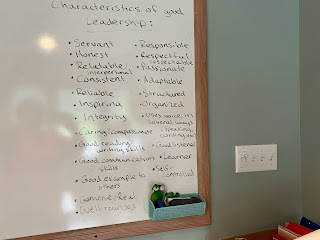 Characteristics of good
Leadership:
• Servant
• Honest
• Relatable/
interpersonal
• Consistent
• Reliable
• Inspiring
• Integrity
• Caring/compassionate
• Good reading/
writing skills
• Good communication
skills
• Good example to
others
• Genuine/Real
• Well rounded
• Responsible
• Respectful/
respectable
• Passionate
• Adaptable
• Structured
• Organized
• Uses voice in
several ways
(speaking,
writing,
• Good listener
• Learner
• Self-
controlled